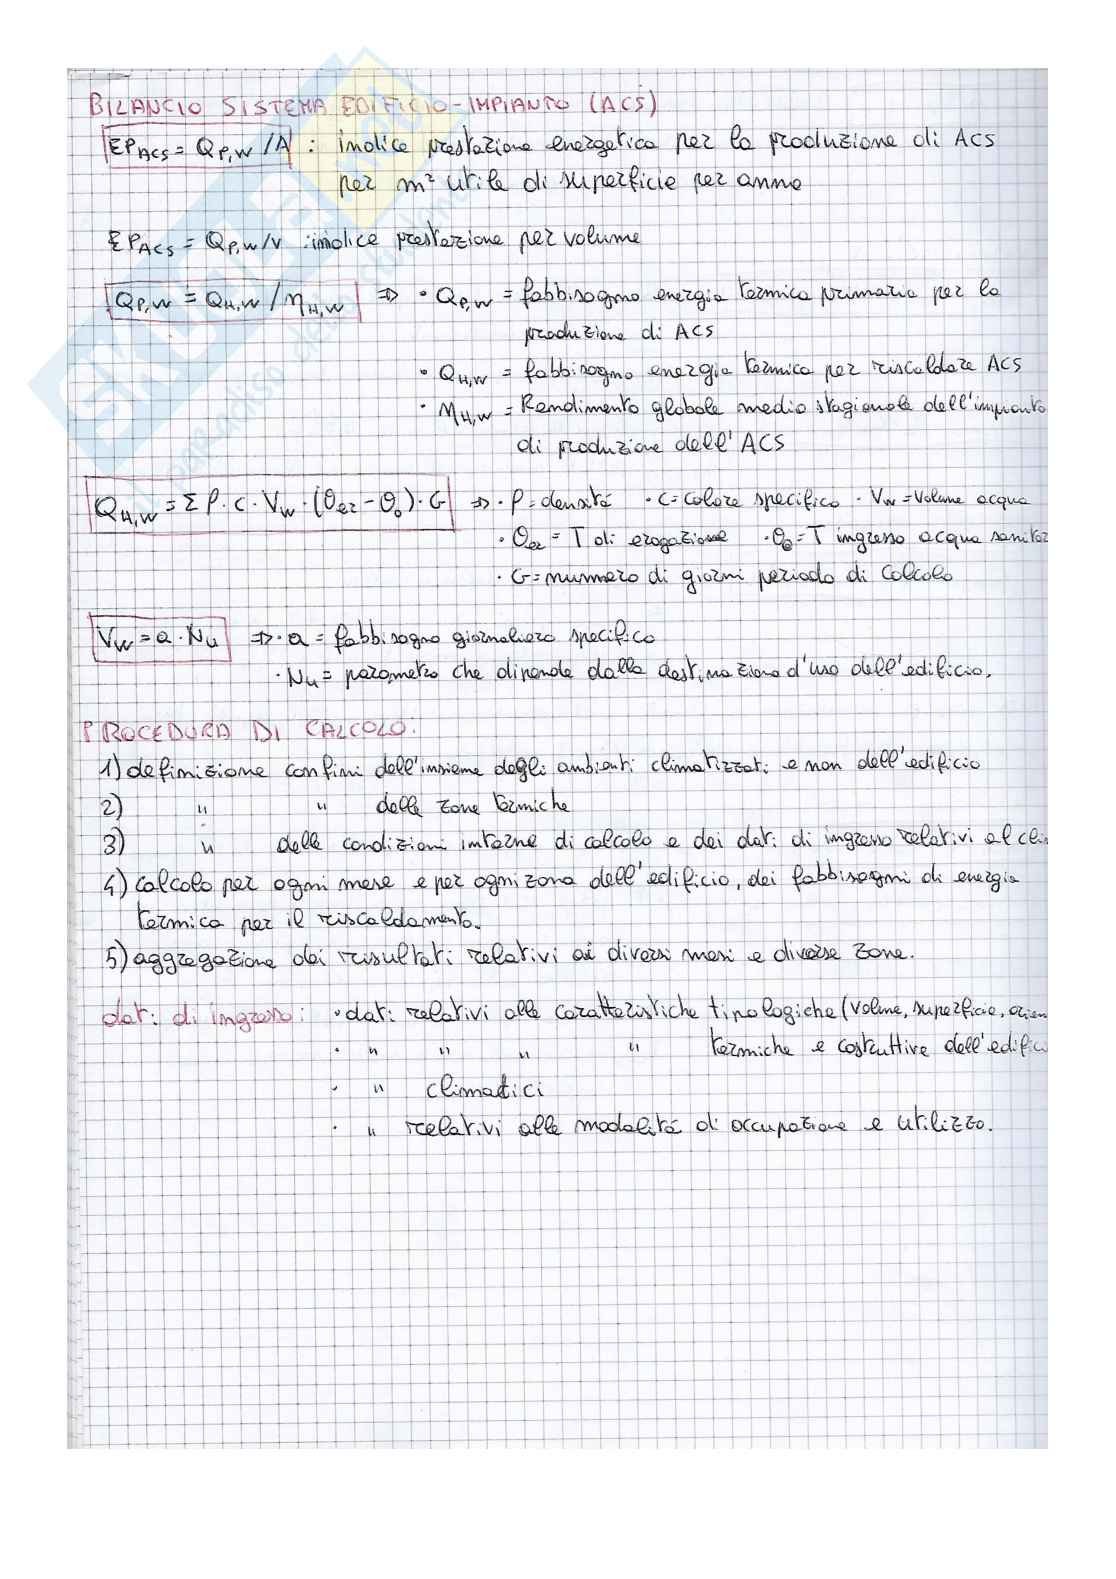 BILANCIO SISTEMA EDIFICIO-IMPIANTO (ACS)
EP_ACS = Q_P,W /A : indice prestazione energetica per la produzione di ACS
per m² utile di superficie per anno
EP_ACS = Q_P,W/V : indice prestazione per volume
Q_P,W = Q_H,W / η_H,W => · Q_P,W = fabbisogno energia termica primaria per la
produzione di ACS
· Q_H,W = fabbisogno energia termica per riscaldare ACS
· η_H,W = Rendimento globale medio stagionale dell'impianto
di produzione dell'ACS
Q_H,W = Σ ρ · c · V_W · (θ_er - θ_o) · G => · ρ = densità · c = calore specifico · V_W = Volume acqua
· θ_er = T di erogazione · θ_o = T ingresso acqua sanitar
· G = nummero di giorni periodo di calcolo
V_W = a · N_u => · a = fabbisogno giornaliero specifico
· N_u = parametro che dipende dalla destinazione d'uso dell'edificio.
PROCEDURA DI CALCOLO:
1) definizione confini dell'insieme degli ambienti climatizzati e non dell'edificio
2) " " delle zone termiche
3) " delle condizioni interne di calcolo e dei dati di ingresso relativi al cli
4) calcolo per ogni mese e per ogni zona dell'edificio, dei fabbisogni di energia
termica per il riscaldamento.
5) aggregazione dei risultati relativi ai diversi mesi e diverse zone.
dati di ingresso: · dati relativi alle caratteristiche tipologiche (volume, superficie, orien
· " " " " termiche e costruttive dell'edific
· " climatici
· " relativi alle modalità di occupazione e utilizzo.